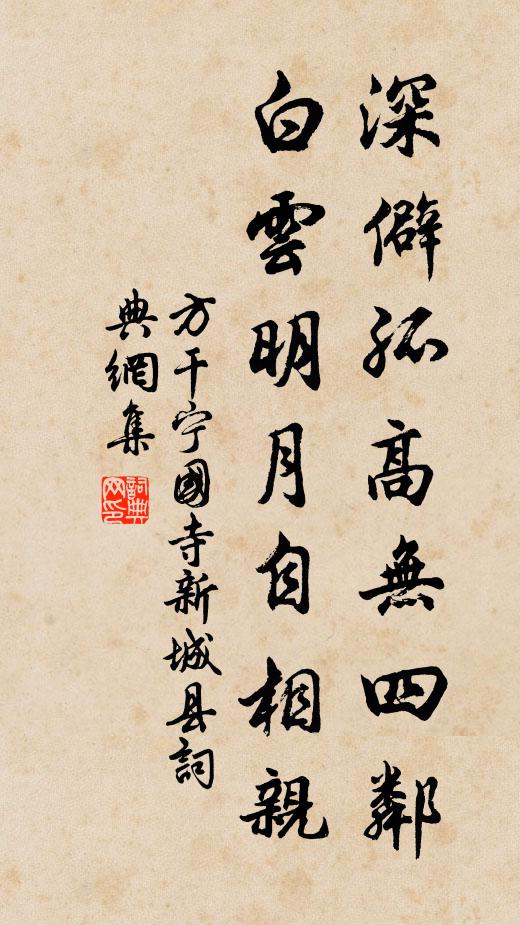 深僻孤高無四鄰
白雲明月自相親
方干宁國寺新城县詞
典網集
詞典
网印